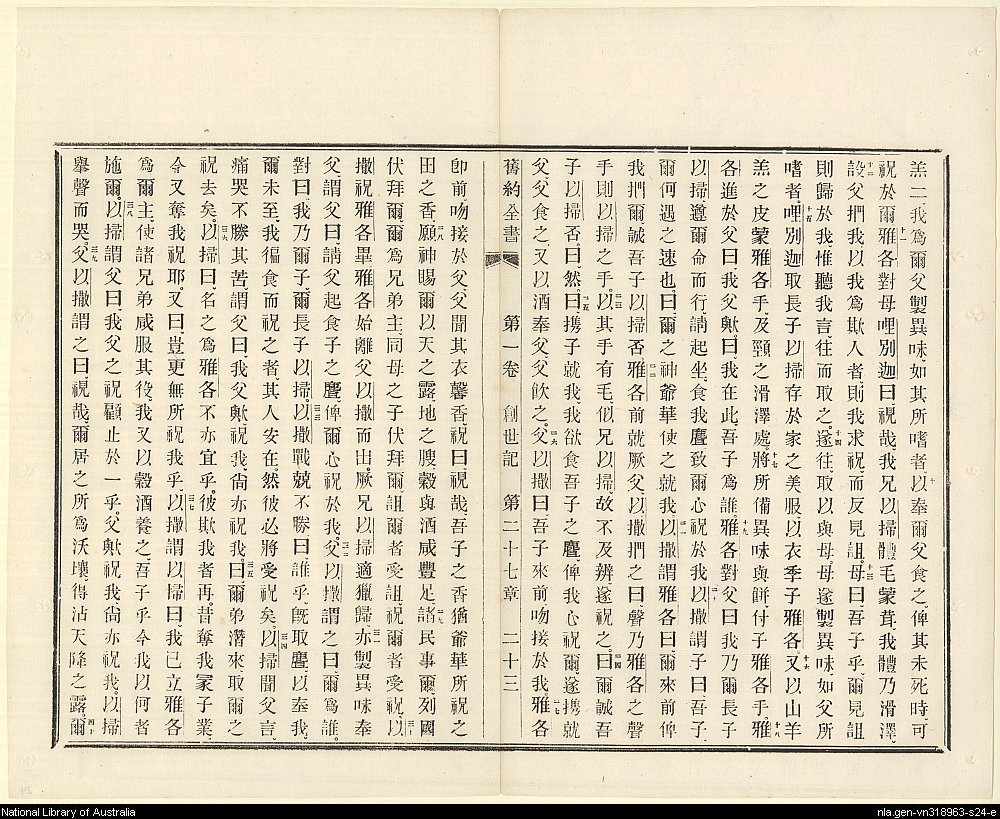 羔二、我爲爾父製異味、如其所嗜者、十以奉爾父食之、俾其未死時、可
祝於爾、十一雅各對母哩別迦曰、視哉、我兄以掃體毛蒙茸、我體乃滑澤、
十二設父捫我、以我爲欺人者、則我求祝而反見詛、十三母曰、吾子乎、爾見詛
則歸於我、惟聽我言、往而取之、十四遂往、取以與母、母遂製異味、如父所
嗜者、十五哩別迦取長子以掃存於家之美服、以衣季子雅各、十六又以山羊
羔之皮蒙雅各手、及頸之滑澤處、十七將所備異味與餅、付子雅各手、十八雅
各進於父曰、我父歟、曰、我在此、吾子爲誰、十九雅各對父曰、我乃爾長子
以掃、遵爾命而行、請起坐、食我麞、致爾心祝於我、二十以撒謂子曰、吾子、
爾何遇之速也、曰、爾之神爺華使之就我、二一以撒謂雅各曰、爾來前、俾
我捫爾、誠吾子以掃否、二二雅各前就厥父、以撒捫之曰、聲乃雅各之聲、
手則以掃之手、二三以其手有毛似兄以掃、故不及辨、遂祝之、二四曰、爾誠吾
子以掃否、曰、然、二五曰、攜子就我、我欲食吾子之麞、俾我心祝爾、遂攜就
父、父食之、又以酒奉父、父飲之、二六父以撒曰、吾子來前、吻接於我、二七雅各
舊約全書 第一卷 創世記 第二十七章 二十三
卽前、吻接於父、父聞其衣馨香、祝曰、視哉、吾子之香、猶爺華所祝之
田之香、二八願神賜爾以天之露、地之腴、穀與酒咸豐足、二九諸民事爾、列國
伏拜爾、爾爲兄弟主、同母之子伏拜爾、詛爾者受詛、祝爾者受祝、三十以
撒祝雅各畢、雅各始離父以撒而出、厥兄以掃適獵歸、三一亦製異味奉
父、謂父曰、請父起食子之麞、俾爾心祝於我、三二父以撒謂之曰、爾爲誰、
對曰、我乃爾子、爾長子以掃、三三以撒戰兢不勝曰、誰乎、旣取麞以奉我、
爾未至、我徧食而祝之者、其人安在、然彼必將受祝矣、三四以掃聞父言、
痛哭不勝其苦、謂父曰、我父歟、祝我、尙亦祝我、三五曰、爾弟潛來取爾之
祝去矣、三六以掃曰、名之爲雅各、不亦宜乎、彼欺我者再、昔奪我冢子業、
今又奪我祝耶、又曰、豈更無所祝我乎、三七以撒謂以掃曰、我已立雅各
爲爾主、使諸兄弟咸服其役、我又以穀酒養之、吾子乎、今我以何者
施爾、三八以掃謂父曰、我父之祝、顧止於一乎、父歟、祝我、尙亦祝我、以掃
舉聲而哭、三九父以撒謂之曰、視哉、爾居之所爲沃壤、得沾天降之露、四十爾
National Library of Australia
nla.gen-vn318963-s24-e